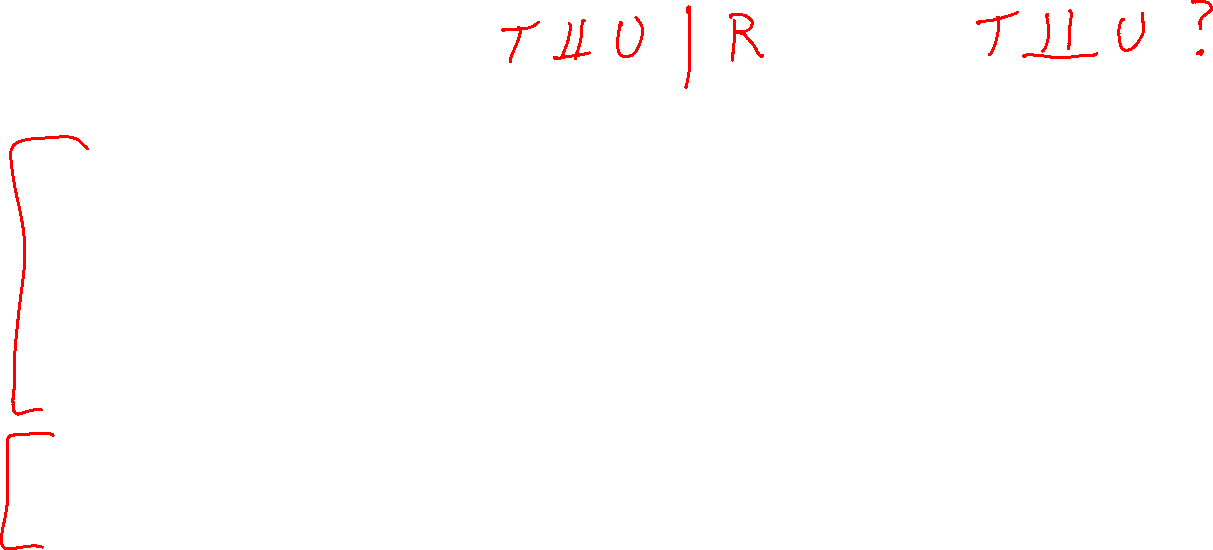 T ⫫ U | R T ⫫ U ?